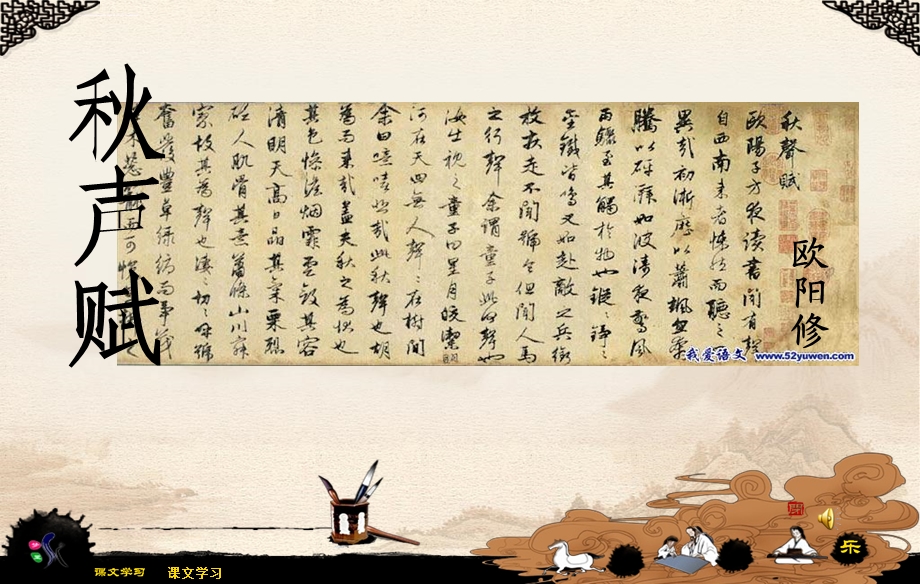 秋声赋
欧阳修
秋聲賦
歐陽子方夜读書聞有聲
自西南来者悚然而聽之曰
異哉初淅瀝以蕭颯忽奔
騰以砰湃如波濤夜驚風
雨驟至其觸於物也鏦〻錚〻
金鐵皆鳴又如赴敵之兵銜
枚疾走不聞號令但聞人馬
之行聲余謂童子此何聲也
汝出視之童子曰星月皎潔明
河在天四無人聲〻在樹間
余曰噫嘻悲哉此秋聲也胡
為而来哉蓋夫秋之為狀也
其色惨淡烟霏雲斂其容
清明天高日晶其氣栗烈
砭人肌骨其意蕭條山川寂
寥故其為聲也凄〻切〻呼號
奮發豐草綠縟而争茂
木葱蘢而可
我爱语文 www.52yuwen.com
课文学习
课文学习
乐